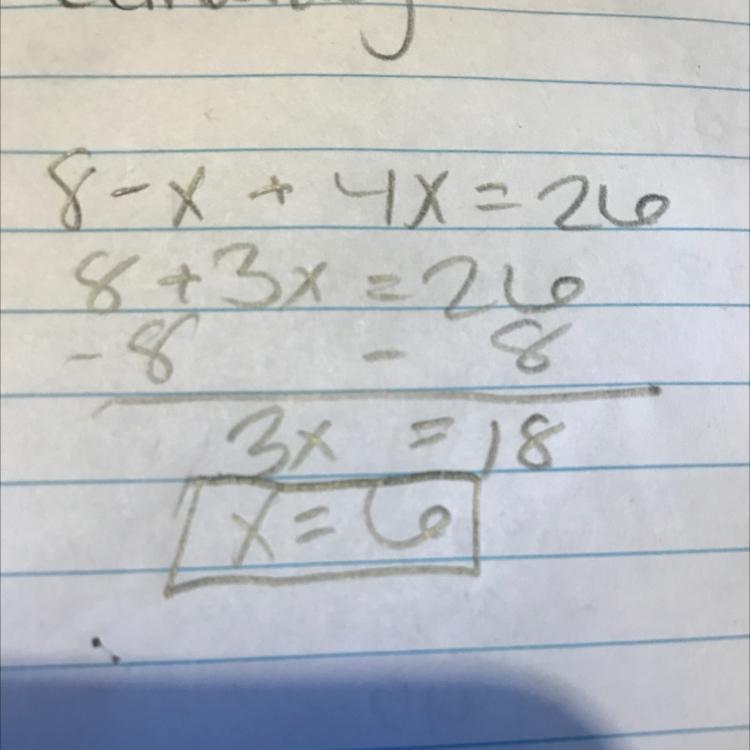 8 - x + 4x = 26
8 + 3x = 26
- 8 - 8
3x = 18
x = 6